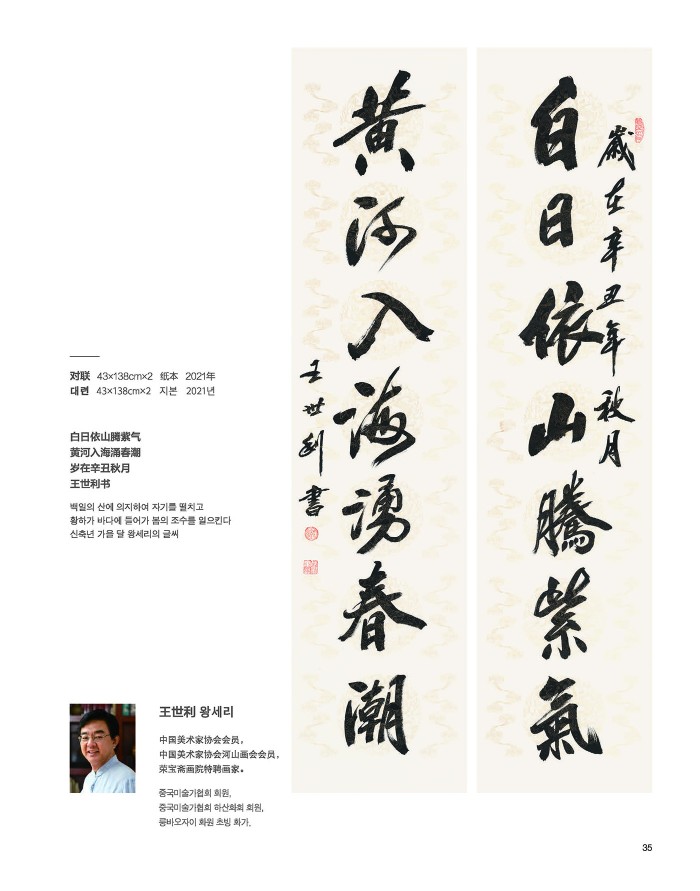 歲在辛丑年秋月
白日依山騰紫氣
黃河入海湧春潮
王世利書
对联 43×138cm×2 纸本 2021年
대련 43×138cm×2 지본 2021년
白日依山腾紫气
黄河入海涌春潮
岁在辛丑秋月
王世利书
백일의 산에 의지하여 자기를 떨치고
황하가 바다에 들어가 봄의 조수를 일으킨다
신축년 가을 달 왕세리의 글씨
王世利 왕세리
中国美术家协会会员，
中国美术家协会河山画会会员，
荣宝斋画院特聘画家。
중국미술가협회 회원,
중국미술가협회 하산화회 회원,
룽바오자이 화원 초빙 화가.
35